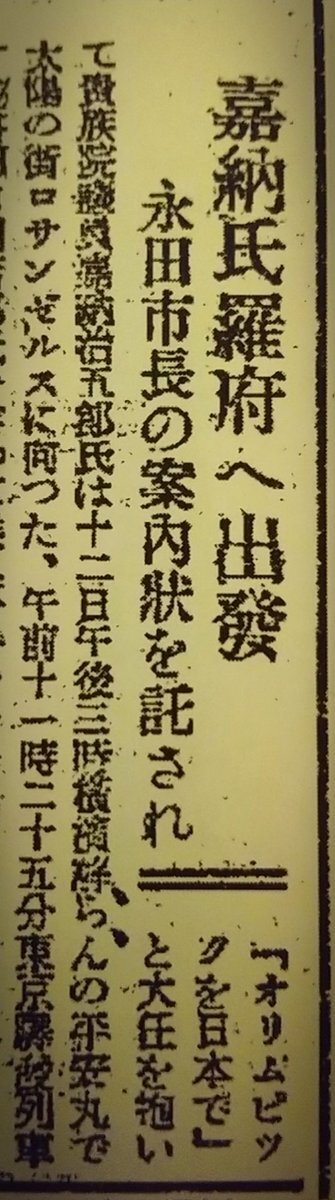 嘉納氏羅府へ出發
永田市長の案內狀を託され
「オリムピッ
クを日本で」
と大任を抱い
て貴族院議員嘉納治五郎氏は十二日午後三時橫濱解らんの平安丸で
太陽の街ロサンゼルスに向つた、午前十一時二十五分東京驛發列車